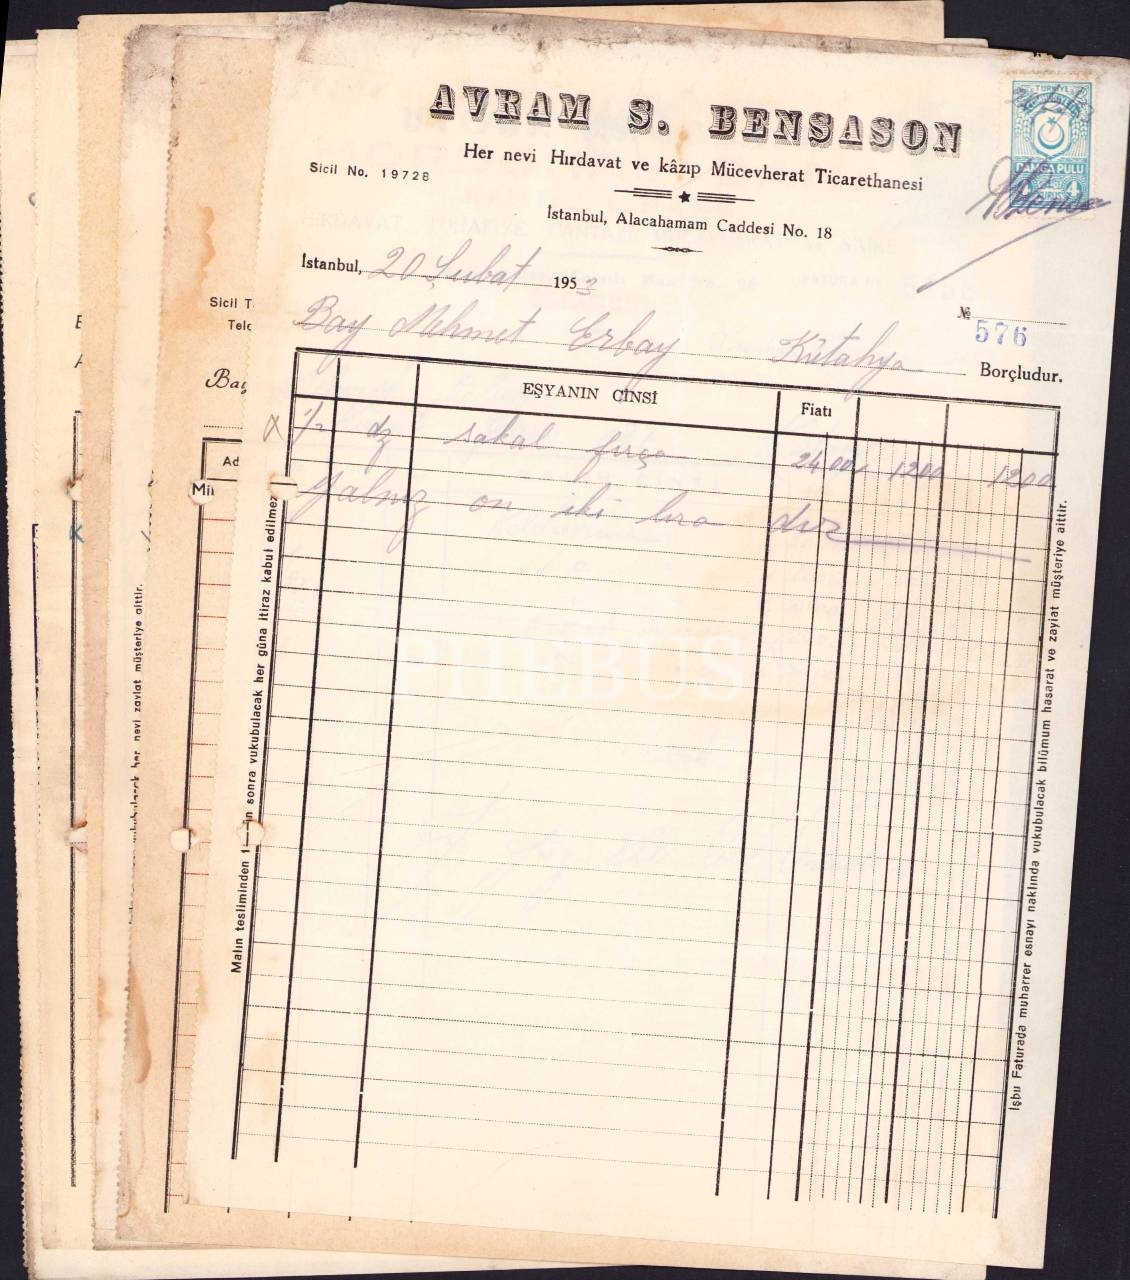 AVRAM S. BENSASON
Her nevi Hırdavat ve kâzıp Mücevherat Ticarethanesi
Sicil No. 19728
İstanbul, Alacahamam Caddesi No. 18
DAMGA PULU
4
İstanbul, 20 Şubat 1953
№ 576
Bay Mehmet Erbay Kütahya Borçludur.
EŞYANIN CİNSİ Fiatı
1/2 dz sakal fırça 2400 1200 1200
Yalnız on iki lira dır
Malın tesliminden sonra vukubulacak her güna itiraz kabul edilmez
İşbu Faturada muharrer esnayı naklında vukubulacak bilûmum hasarat ve zayiat müşteriye aittir.
PHEBUS
Sicil T.
Tele
Bay
Ad
Mil
her nevi zayiat müşteriye aittir.